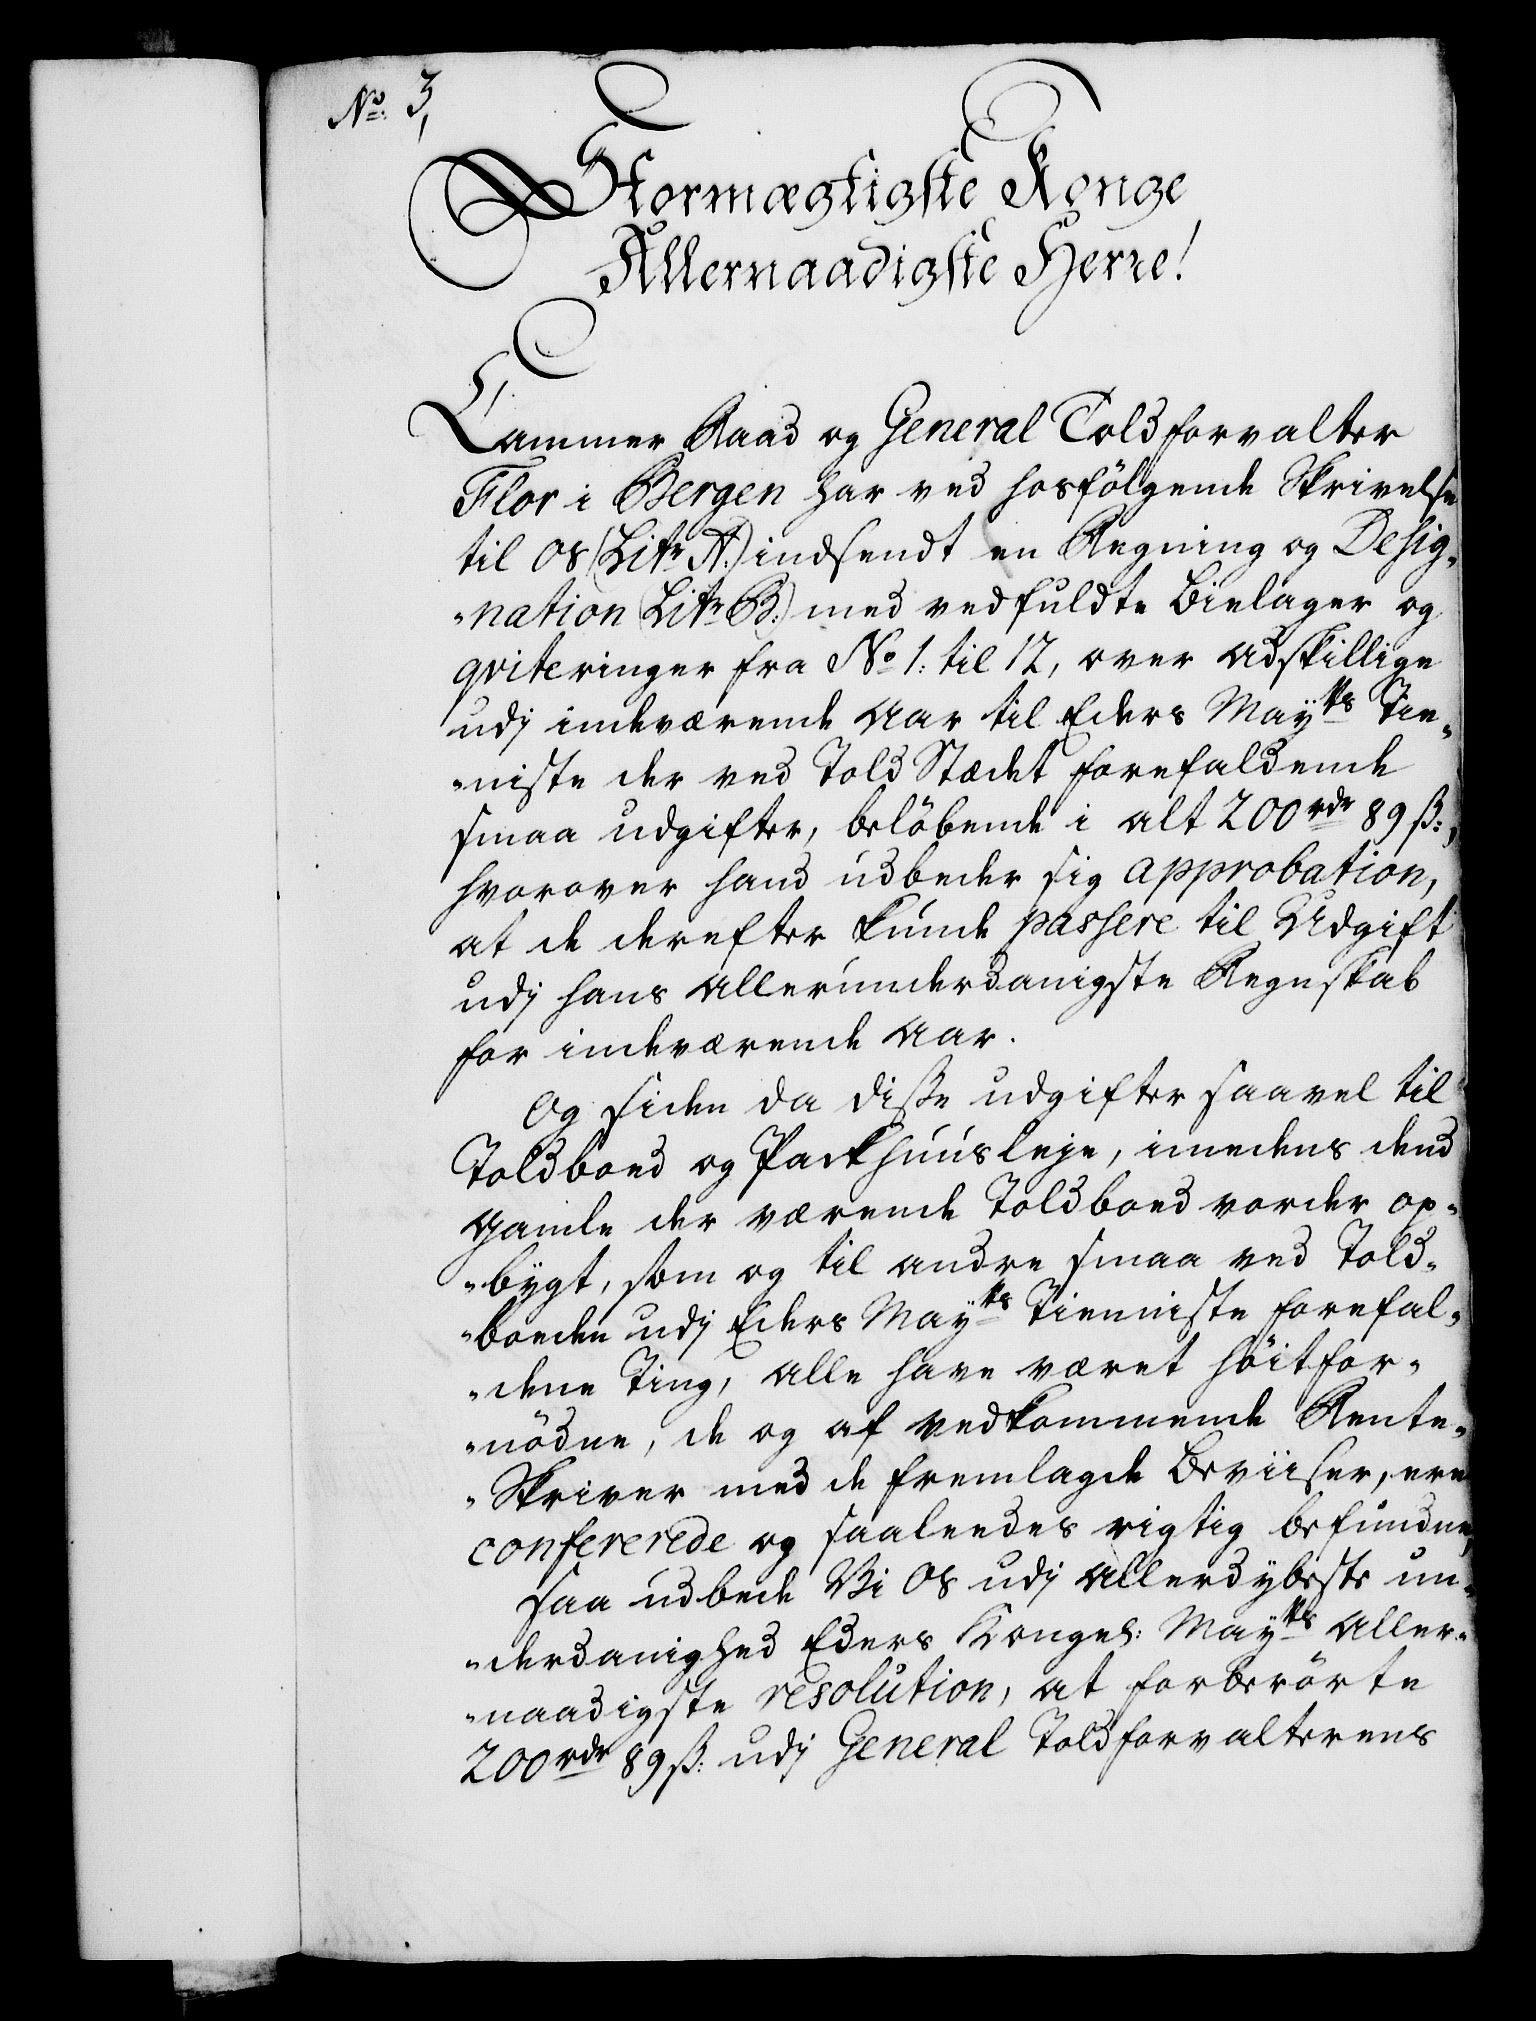 No. 3,
Stormægtigste Konge
Allernaadigste Herre!
Cammer Raad og General Toldforvalter
Flor i Bergen har ved hosfölgende Skrivelse
til os (Litr A:) indsendt en Regning og Desig-
-nation (Litr B:) med vedfuldte Bielager og
qviteringer fra No 1: til 12, over adskillige
udj indeværende Aar til Eders Mayts Tie-
-niste der ved Told Stædet forefaldende
smaa udgifter, belöbende i alt 200 rdr 89 ß:,
hvorover hand udbeder sig approbation,
at de derefter kunde passere til Udgift
udj hans allerunderdanigste Regnskab
for indeværende Aar.
Og siden da disse udgifter saavel til
Toldboed og Packhuusleje, imedens dend
gamle der værende Toldboed vorder op-
-bygt, som og til andre smaa ved Told-
-boeden udj Eders Mayts Tienniste forefal-
-dene Ting, alle have været höitfor-
-nödne, de og af vedkommende Rente-
-Skriver med de fremlagde Beviiser, ere
confererede og saaleedes rigtig befundne,
saa udbede Vi os udj allerdybeste un-
-derdanighed Eders Kongel: Mayts Aller-
-naadigste resolution, at forberörte
200 rdr 89 ß: udj General Toldforvalterens